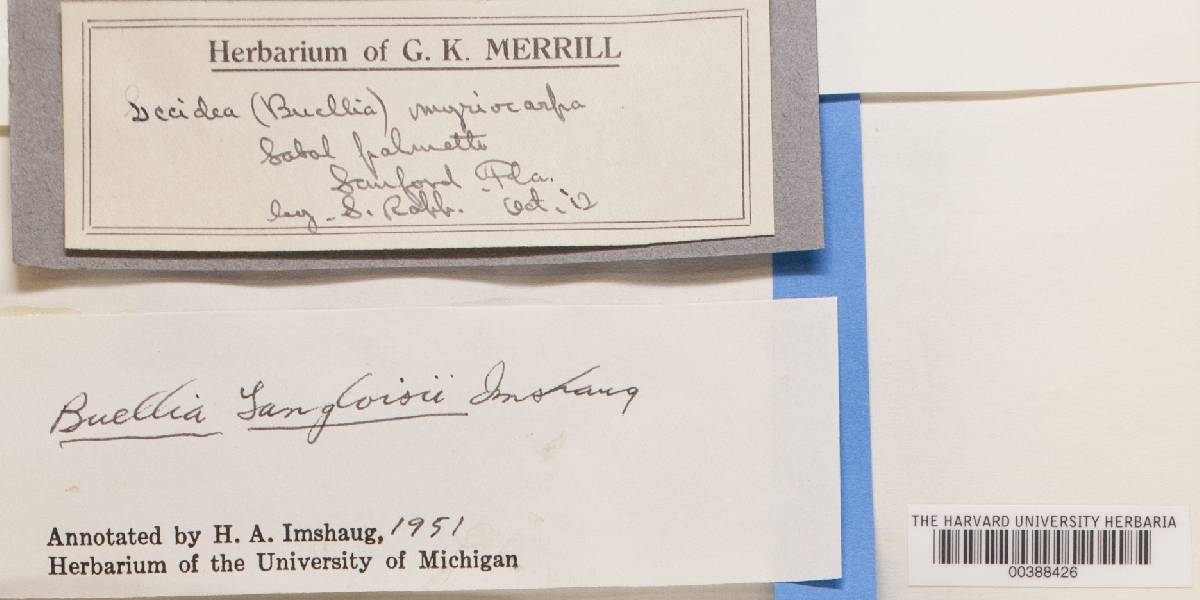 Herbarium of G. K. MERRILL
Lecidea (Buellia) myriocarpa
Sabal palmetto
Sanford Fla.
leg. S. Rapp. Oct. '12
Buellia Langloisii Imshaug
Annotated by H. A. Imshaug, 1951
Herbarium of the University of Michigan
THE HARVARD UNIVERSITY HERBARIA
00388426